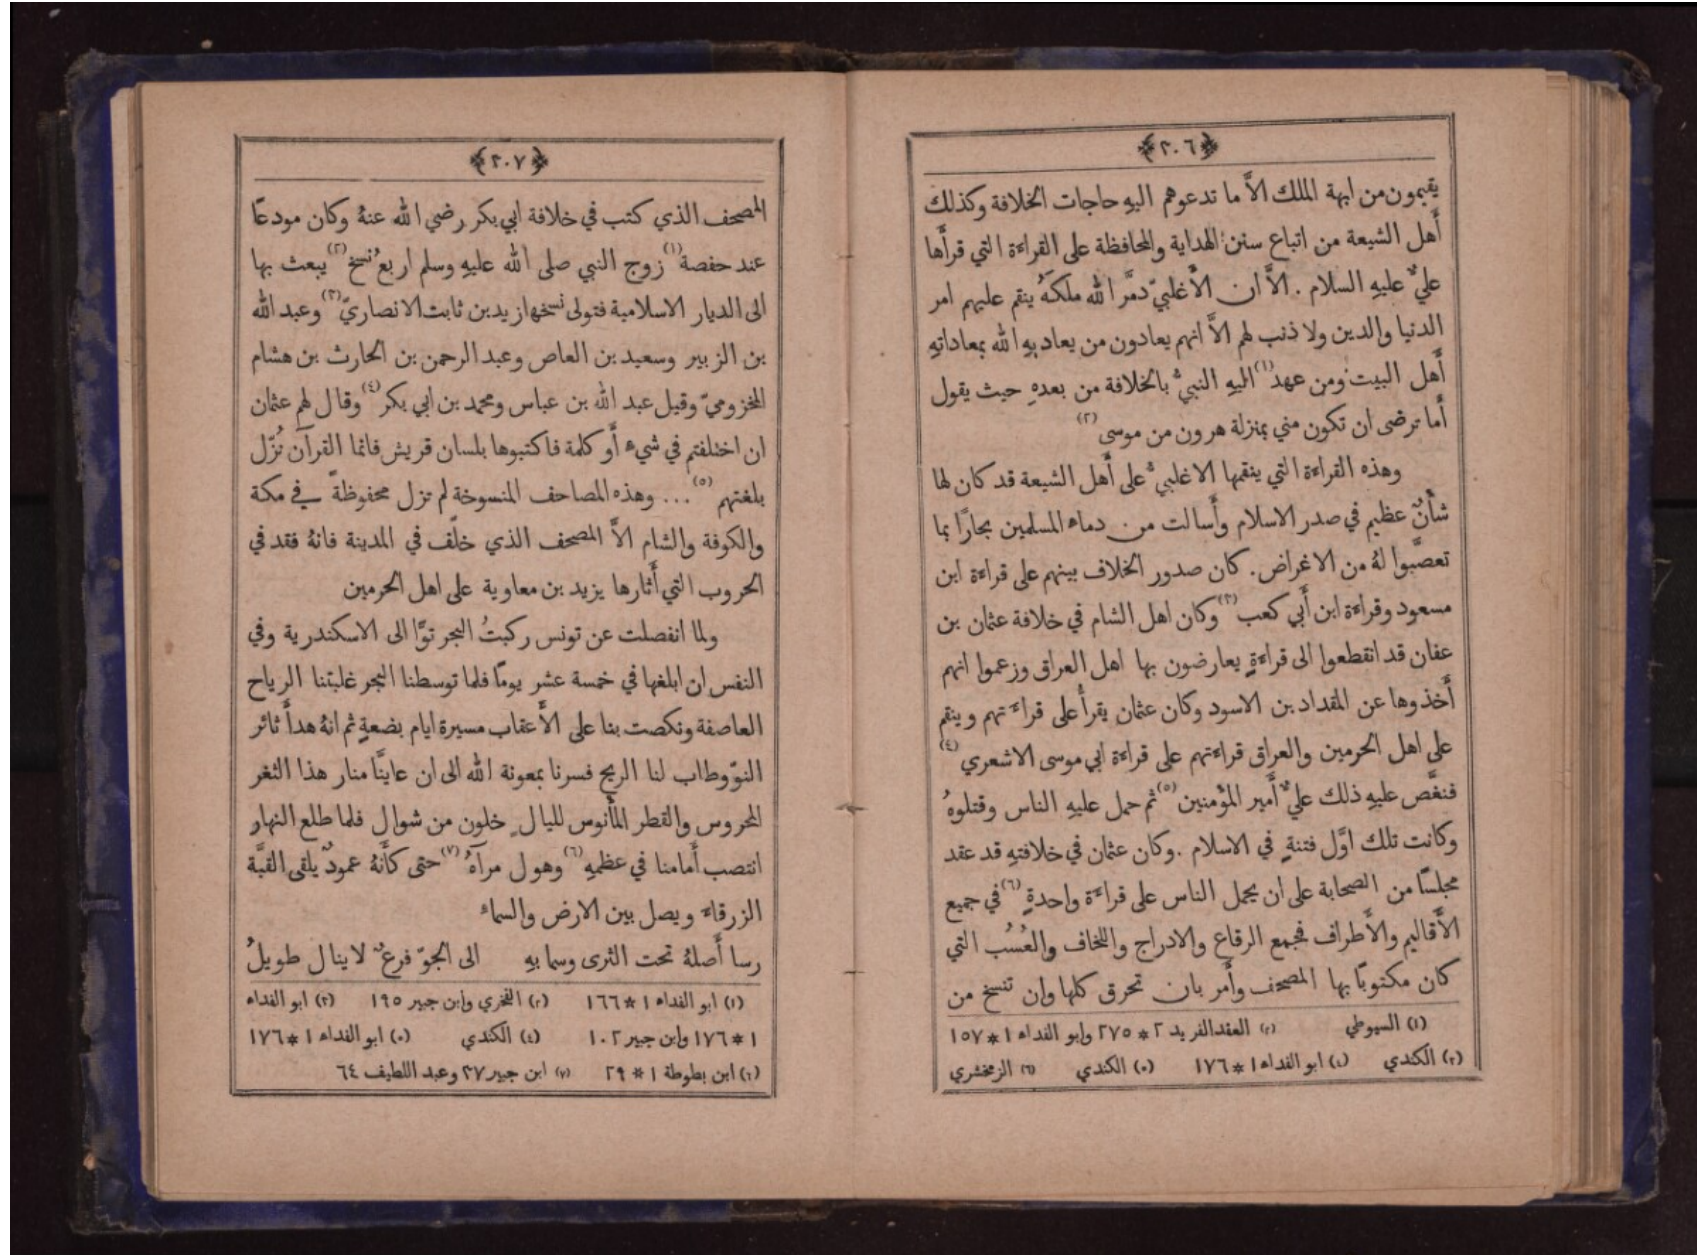 ﴿٢٠٦﴾
يقيمون من ابهة الملك الاَّ ما تدعوهم اليهِ حاجات الخلافة وكذلك
أَهل الشيعة من اتباع سنن الهداية والمحافظة على القراءة التي قرأَها
عليٌّ عليهِ السلام . الاَّ ان الأَغلبيّ دمَّر الله ملكهُ ينقم عليهم امر
الدنيا والدين ولا ذنب لهم الاَّ انهم يعادون من يعاديهِ الله بمعاداتهِ
أَهل البيت ومن عهد (١) اليهِ النبيُّ بالخلافة من بعدهِ حيث يقول
أَما ترضى ان تكون مني بمنزلة هرون من موسى (٢)
وهذه القراءة التي ينقمها الاغلبيُّ على أَهل الشيعة قد كان لها
شأنٌ عظيم في صدر الاسلام وأَسالت من دماء المسلمين بحارًا بما
تعصَّبوا لهُ من الاغراض . كان صدور الخلاف بينهم على قراءة ابن
مسعود وقراءة ابن أَبي كعب (٣) وكان اهل الشام في خلافة عثمان بن
عفان قد انقطعوا الى قراءةٍ يعارضون بها اهل العراق وزعموا انهم
أَخذوها عن المقداد بن الاسود وكان عثمان يقرأُ على قراءتهم وينقم
على اهل الحرمين والعراق قراءتهم على قراءة ابي موسى الاشعري (٤)
فنغَّص عليهِ ذلك عليٌّ أَمير المؤمنين (٥) ثم حمل عليهِ الناس وقتلوهُ
وكانت تلك اوَّل فتنةٍ في الاسلام . وكان عثمان في خلافتهِ قد عقد
مجلسًا من الصحابة على ان يحمل الناس على قراءة واحدةٍ (٦) في جميع
الأَقاليم والأَطراف فجمع الرقاع والادراج واللخاف والعُسُب التي
كان مكتوبًا بها المصحف وأَمر بان تحرق كلها وان تنسخ من
(١) السيوطي (٢) العقد الفريد ٢ * ٢٧٥ وابو الفداء ١ * ١٥٧
(٣) الكندي (٤) ابو الفداء ١ * ١٧٦ (٥) الكندي (٦) الزمخشري
﴿٢٠٧﴾
المصحف الذي كتب في خلافة ابي بكر رضي الله عنهُ وكان مودعًا
عند حفصة (١) زوج النبي صلى الله عليهِ وسلم اربع نسخ (٢) يبعث بها
الى الديار الاسلامية فتولى نسخها زيد بن ثابت الانصاريّ (٣) وعبد الله
بن الزبير وسعيد بن العاص وعبد الرحمن بن الحارث بن هشام
المخزوميّ وقيل عبد الله بن عباس ومحمد بن ابي بكر (٤) وقال لهم عثمان
ان اختلفتم في شيءٍ أَو كلمة فاكتبوها بلسان قريش فانما القرآن نُزّل
بلغتهم (٥) ... وهذه المصاحف المنسوخة لم تزل محفوظةً في مكة
والكوفة والشام الاَّ المصحف الذي خلّف في المدينة فانهُ فقد في
الحروب التي أَثارها يزيد بن معاوية على اهل الحرمين
ولما انفصلت عن تونس ركبتُ البحر توًّا الى الاسكندرية وفي
النفس ان ابلغها في خمسة عشر يومًا فلما توسطنا البحر غلبتنا الرياح
العاصفة ونكصت بنا على الأَعقاب مسيرة ايام بضعةٍ ثم انهُ هدأَ ثائر
النوّ وطاب لنا الريح فسرنا بمعونة الله الى ان عاينَّا منار هذا الثغر
المحروس والقطر المأنوس لليالٍ خلون من شوال فلما طلع النهار
انتصب أَمامنا في عظمهِ (٦) وهول مرآهُ (٧) حتى كأَنهُ عمودٌ يلقى القبَّة
الزرقاء ويصل بين الارض والسماء
رسا أَصلهُ تحت الثرى وسما بهِ الى الجوّ فرعٌ لا ينال طويلُ
(١) ابو الفداء ١ * ١٦٦ (٢) الفخري وابن جبير ١٩٥ (٣) ابو الفداء
١ * ١٧٦ وابن جبير ١٠٢ (٤) الكندي (٥) ابو الفداء ١ * ١٧٦
(٦) ابن بطوطة ١ * ٢٩ (٧) ابن جبير ٣٧ وعبد اللطيف ٦٤